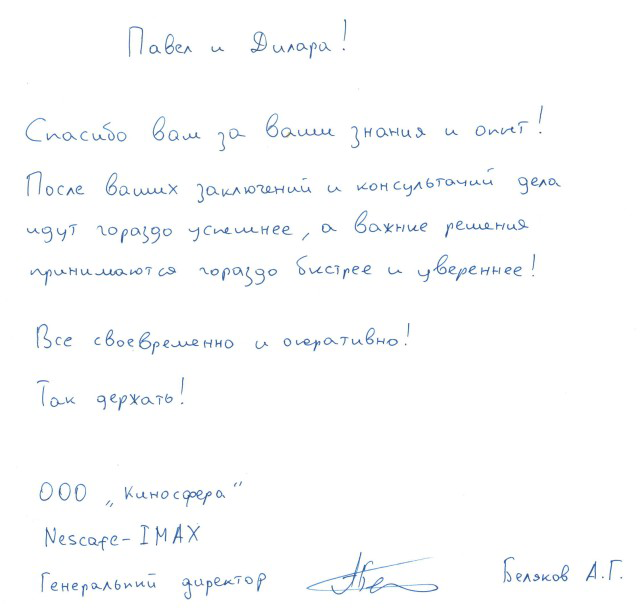 Павел и Дилара!
Спасибо вам за ваши знания и опыт!
После ваших заключений и консультаций дела
идут гораздо успешнее, а важные решения
принимаются гораздо быстрее и увереннее!
Все своевременно и оперативно!
Так держать!
ООО „Киносфера"
Nescafe-IMAX
Генеральный директор Беляков А.Г.